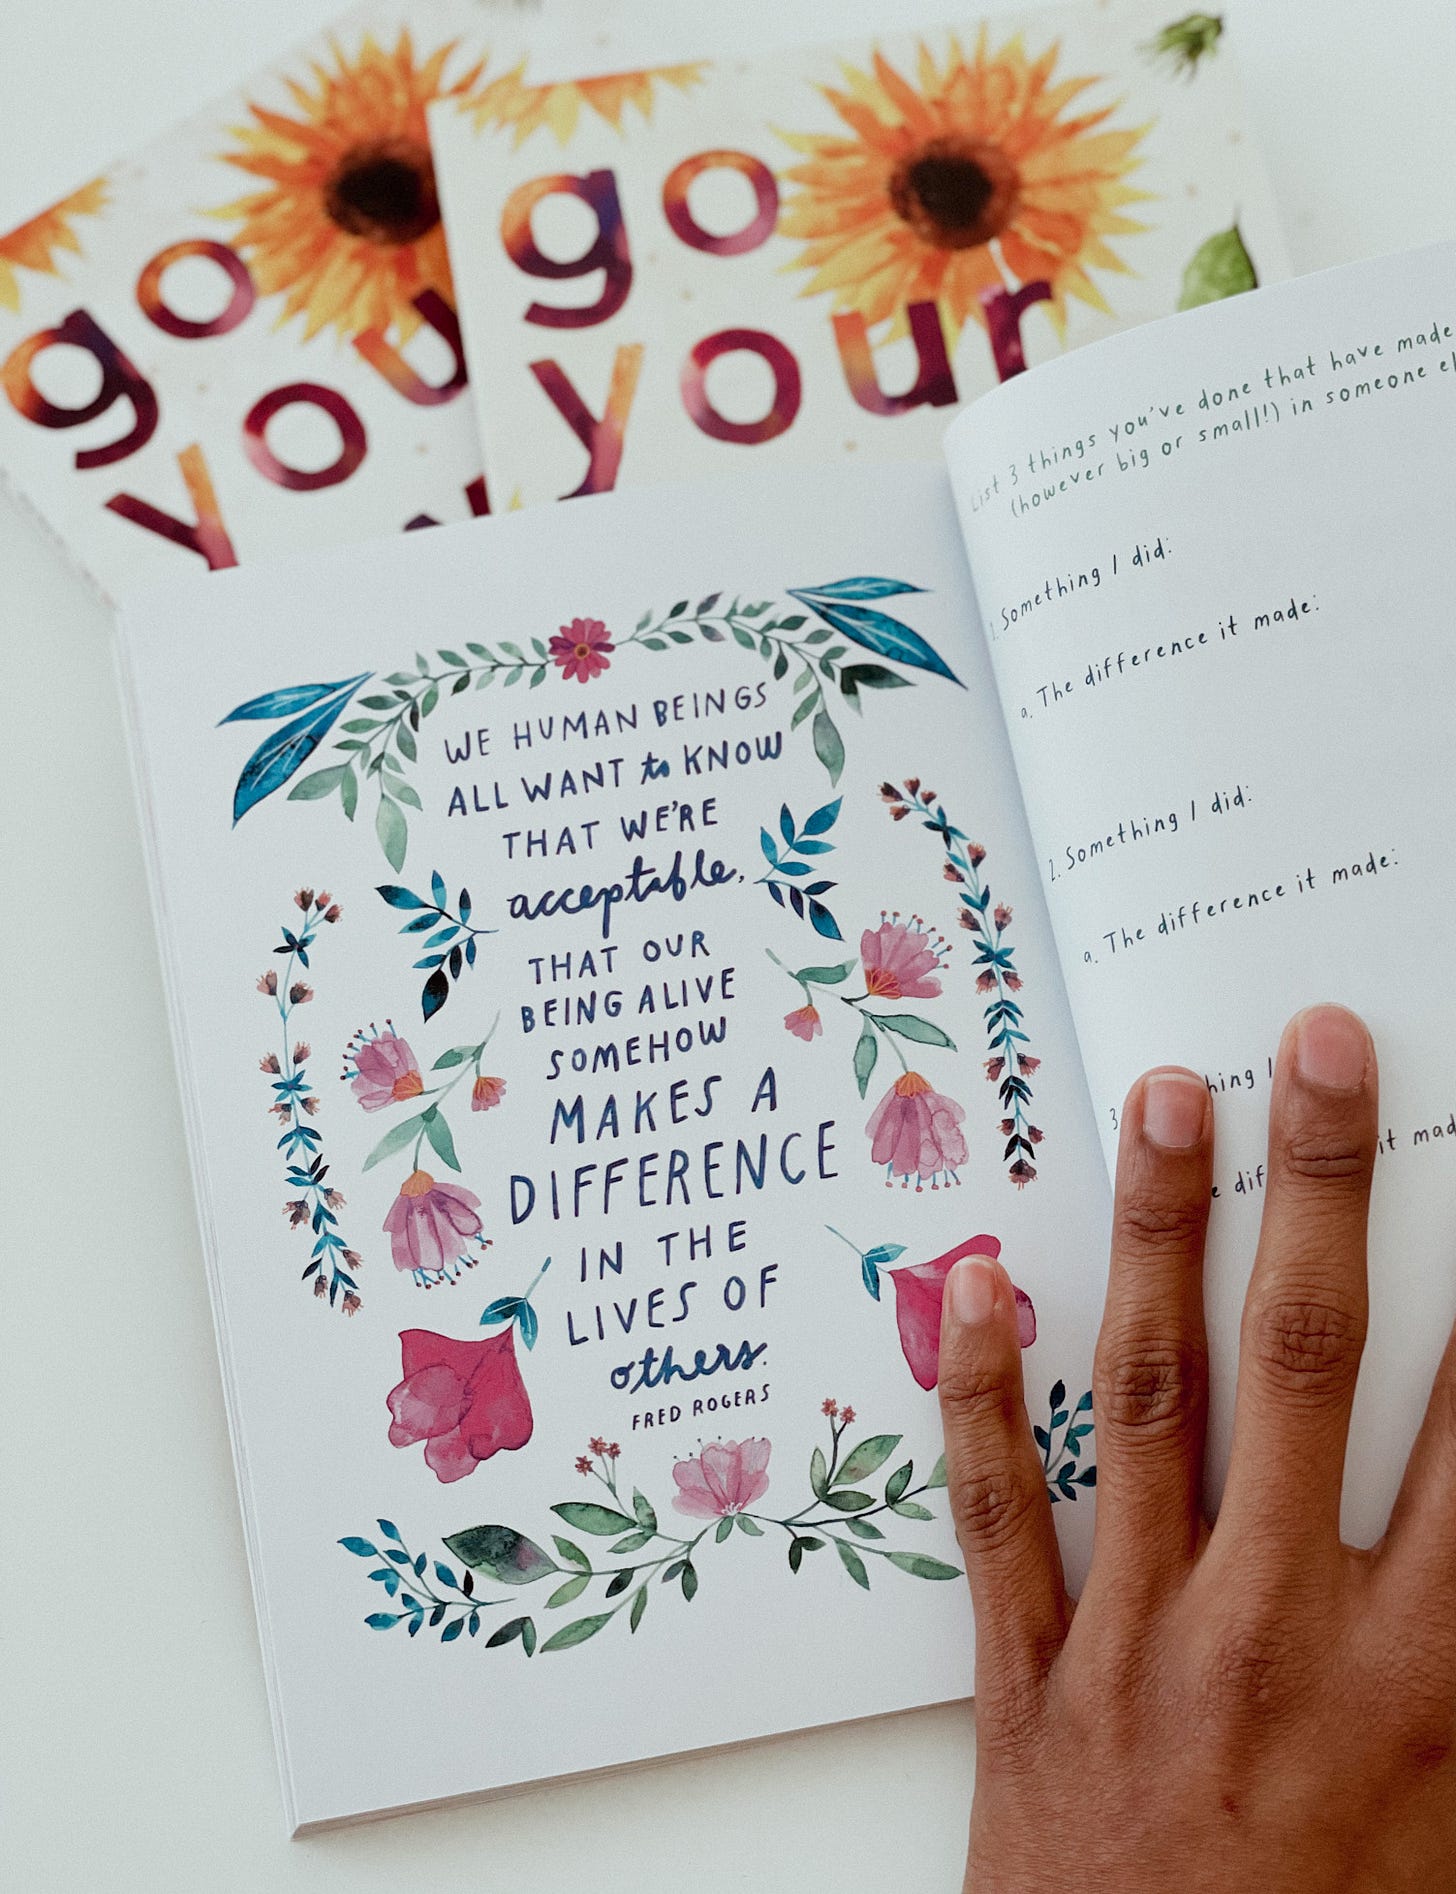 go
your
go
you
WE HUMAN BEINGS
ALL WANT to KNOW
THAT WE'RE
acceptable,
THAT OUR
BEING ALIVE
SOMEHOW
MAKES A
DIFFERENCE
IN THE
LIVES OF
others.
FRED ROGERS
List 3 things you've done that have made
(however big or small!) in someone el
1. Something I did:
a. The difference it made:
2. Something I did:
a. The difference it made:
3 hing I
e dif it mad